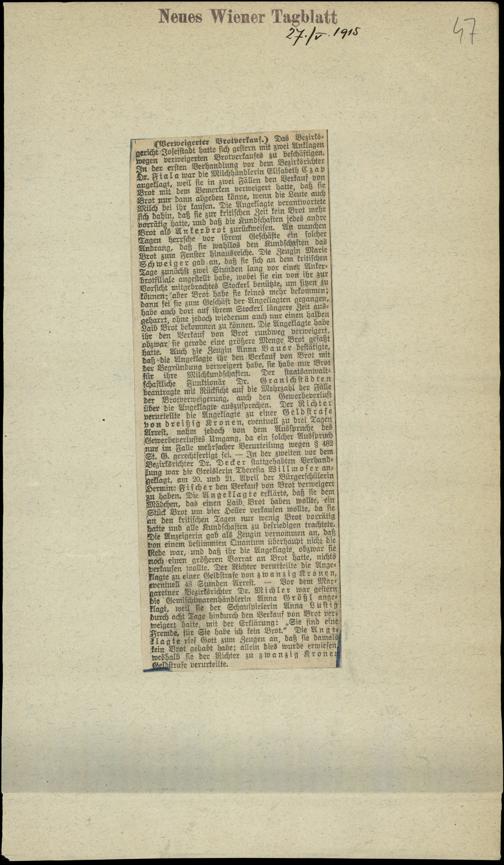 Neues Wiener Tagblatt
27./V. 1915
47
(Verweigerter Brotverkauf.) Das Bezirks-
gericht Josefstadt hatte sich gestern mit zwei Anklagen
wegen verweigerten Brotverkaufes zu beschäftigen.
In der ersten Verhandlung vor dem Bezirksrichter
Dr. Fiala war die Milchhändlerin Elisabeth Czap
angeklagt, weil sie in zwei Fällen den Verkauf von
Brot mit dem Bemerken verweigert hatte, daß sie
Brot nur dann abgeben könne, wenn die Leute auch
Milch bei ihr kaufen. Die Angeklagte verantwortete
sich dahin, daß sie zur kritischen Zeit kein Brot mehr
vorrätig hatte, und daß die Kundschaften jedes andre
Brot als Ankerbrot zurückweisen. An manchen
Tagen herrsche vor ihrem Geschäfte ein solcher
Andrang, daß sie wahllos den Kundschaften das
Brot zum Fenster hinausreiche. Die Zeugin Marie
Schweiger gab an, daß sie sich an dem kritischen
Tage zunächst zwei Stunden lang vor einer Anker-
brotfiliale angestellt habe, wobei sie ein von ihr zur
Vorsicht mitgebrachtes Stockerl benützte, um sitzen zu
können; aber Brot habe sie keines mehr bekommen;
dann sei sie zum Geschäft der Angeklagten gegangen,
habe auch dort auf ihrem Stockerl längere Zeit aus-
geharrt, ohne jedoch wiederum auch nur einen halben
Laib Brot bekommen zu können. Die Angeklagte habe
ihr den Verkauf von Brot rundweg verweigert,
obzwar sie gerade eine größere Menge Brot gefaßt
hatte. Auch die Zeugin Anna Bauer bestätigte,
daß die Angeklagte ihr den Verkauf von Brot mit
der Begründung verweigert habe, sie habe nur Brot
für ihre Milchkundschaften. Der staatsanwalt-
schaftliche Funktionär Dr. Granichstädten
beantragte mit Rücksicht auf die Mehrzahl der Fälle
der Brotverweigerung, auch den Gewerbeverlust
über die Angeklagte auszusprechen. Der Richter
verurteilte die Angeklagte zu einer Geldstrafe
von dreißig Kronen, eventuell zu drei Tagen
Arrest, nahm jedoch von dem Ausspruche des
Gewerbeverlustes Umgang, da ein solcher Ausspruch
nur im Falle mehrfacher Verurteilung wegen § 482
St. G. gerechtfertigt sei. — In der zweiten vor dem
Bezirksrichter Dr. Decker stattgehabten Verhand-
lung war die Greislerin Theresia Willmoser an-
geklagt, am 20. und 21. April der Bürgerschülerin
Hermine Fischer den Verkauf von Brot verweigert
zu haben. Die Angeklagte erklärte, daß sie dem
Mädchen, das einen Laib Brot haben wollte, ein
Stück Brot um vier Heller verkaufen wollte, da sie
an den kritischen Tagen nur wenig Brot vorrätig
hatte und alle Kundschaften zu befriedigen trachtete.
Die Anzeigerin gab als Zeugin vernommen an, daß
von einem bestimmten Quantum überhaupt nicht die
Rede war, und daß ihr die Angeklagte, obzwar sie
noch einen größeren Vorrat an Brot hatte, nichts
verkaufen wollte. Der Richter verurteilte die Ange-
klagte zu einer Geldstrafe von zwanzig Kronen,
eventuell 48 Stunden Arrest. — Vor dem Mar-
garetner Bezirksrichter Dr. Michler war gestern
die Gemischtwarenhändlerin Anna Größl ange-
klagt, weil sie der Schauspielerin Anna Lustig
durch acht Tage hindurch den Verkauf von Brot ver-
weigert hatte, mit der Erklärung: „Sie sind eine
Fremde, für Sie habe ich kein Brot.“ Die Ange
klagte rief Gott zum Zeugen an, daß sie damals
kein Brot gehabt habe; allein dies wurde erwiesen,
weshalb sie der Richter zu zwanzig Kronen
Geldstrafe verurteilte.